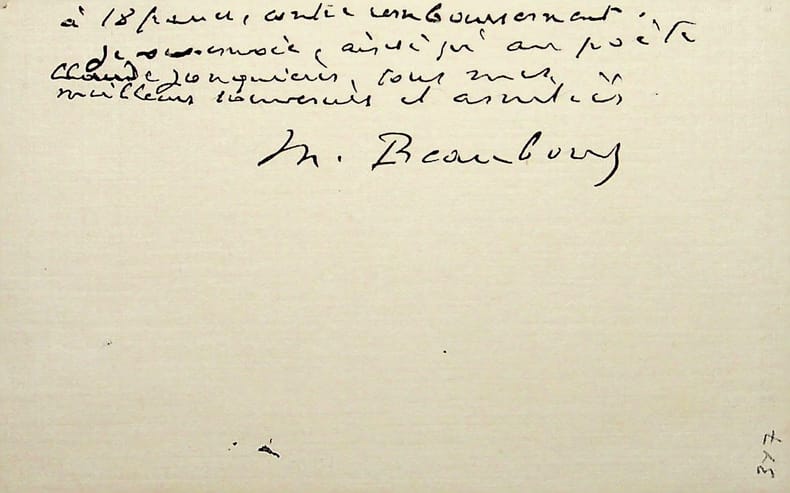 à 18 francs, contre remboursement.
Je vous envoie, ainsi qu'au poète
Claude Jonquières, tous mes
meilleurs souvenirs et amitiés
M. Beaubourg
347